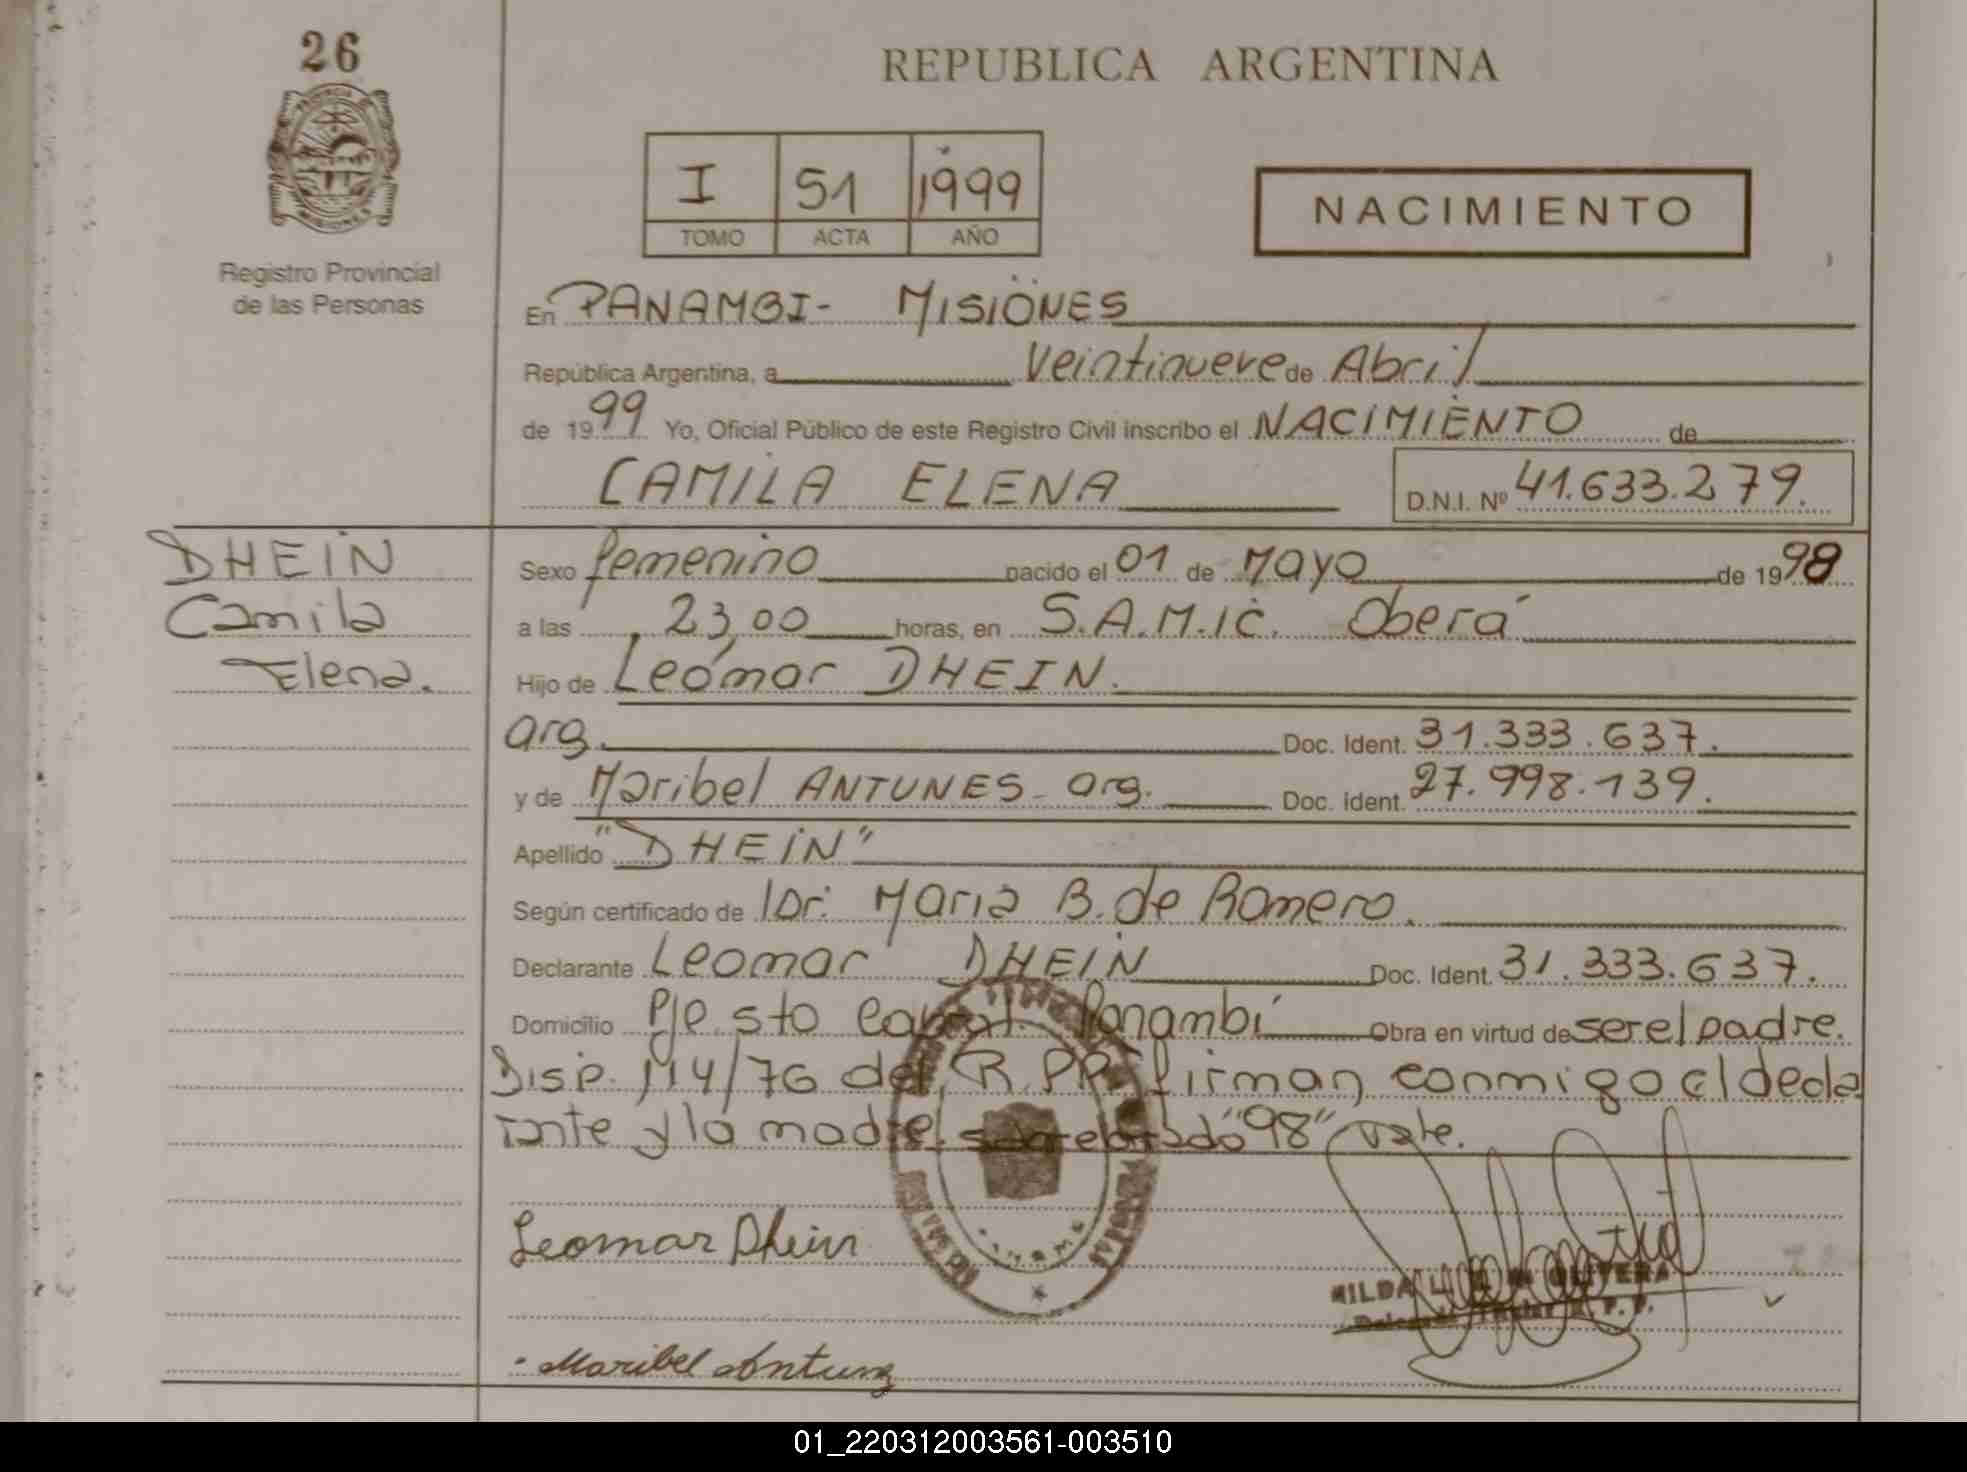 26
REPUBLICA ARGENTINA
PROVINCIA DE
MISIONES
Registro Provincial
de las Personas
I 51 1999
TOMO ACTA AÑO
NACIMIENTO
En PANAMBI- MISIONES
República Argentina, a Veintinueve de Abril
de 1999 Yo, Oficial Público de este Registro Civil inscribo el NACIMIENTO de
CAMILA ELENA D.N.I. Nº 41.633.279.
DHEIN
Camila
Elena.
Sexo femenino nacido el 01 de Mayo de 1998
a las 23,00 horas, en S.A.M.IC. Oberá
Hijo de Leomar DHEIN.
arg. Doc. Ident. 31.333.637.
y de Maribel ANTUNES - arg. Doc. ident. 27.998.139.
Apellido "DHEIN"
Según certificado de Dr. Maria B. de Romero.
Declarante Leomar DHEIN Doc. Ident. 31.333.637.
Domicilio Pje sto Cabral. Panambí Obra en virtud de ser el padre.
Disp. 114/76 del R.PP. firman conmigo el decla
rante y la madre. sobreborrado "98" vale.
Leomar Dhein
Maribel Antunez
01_220312003561-003510